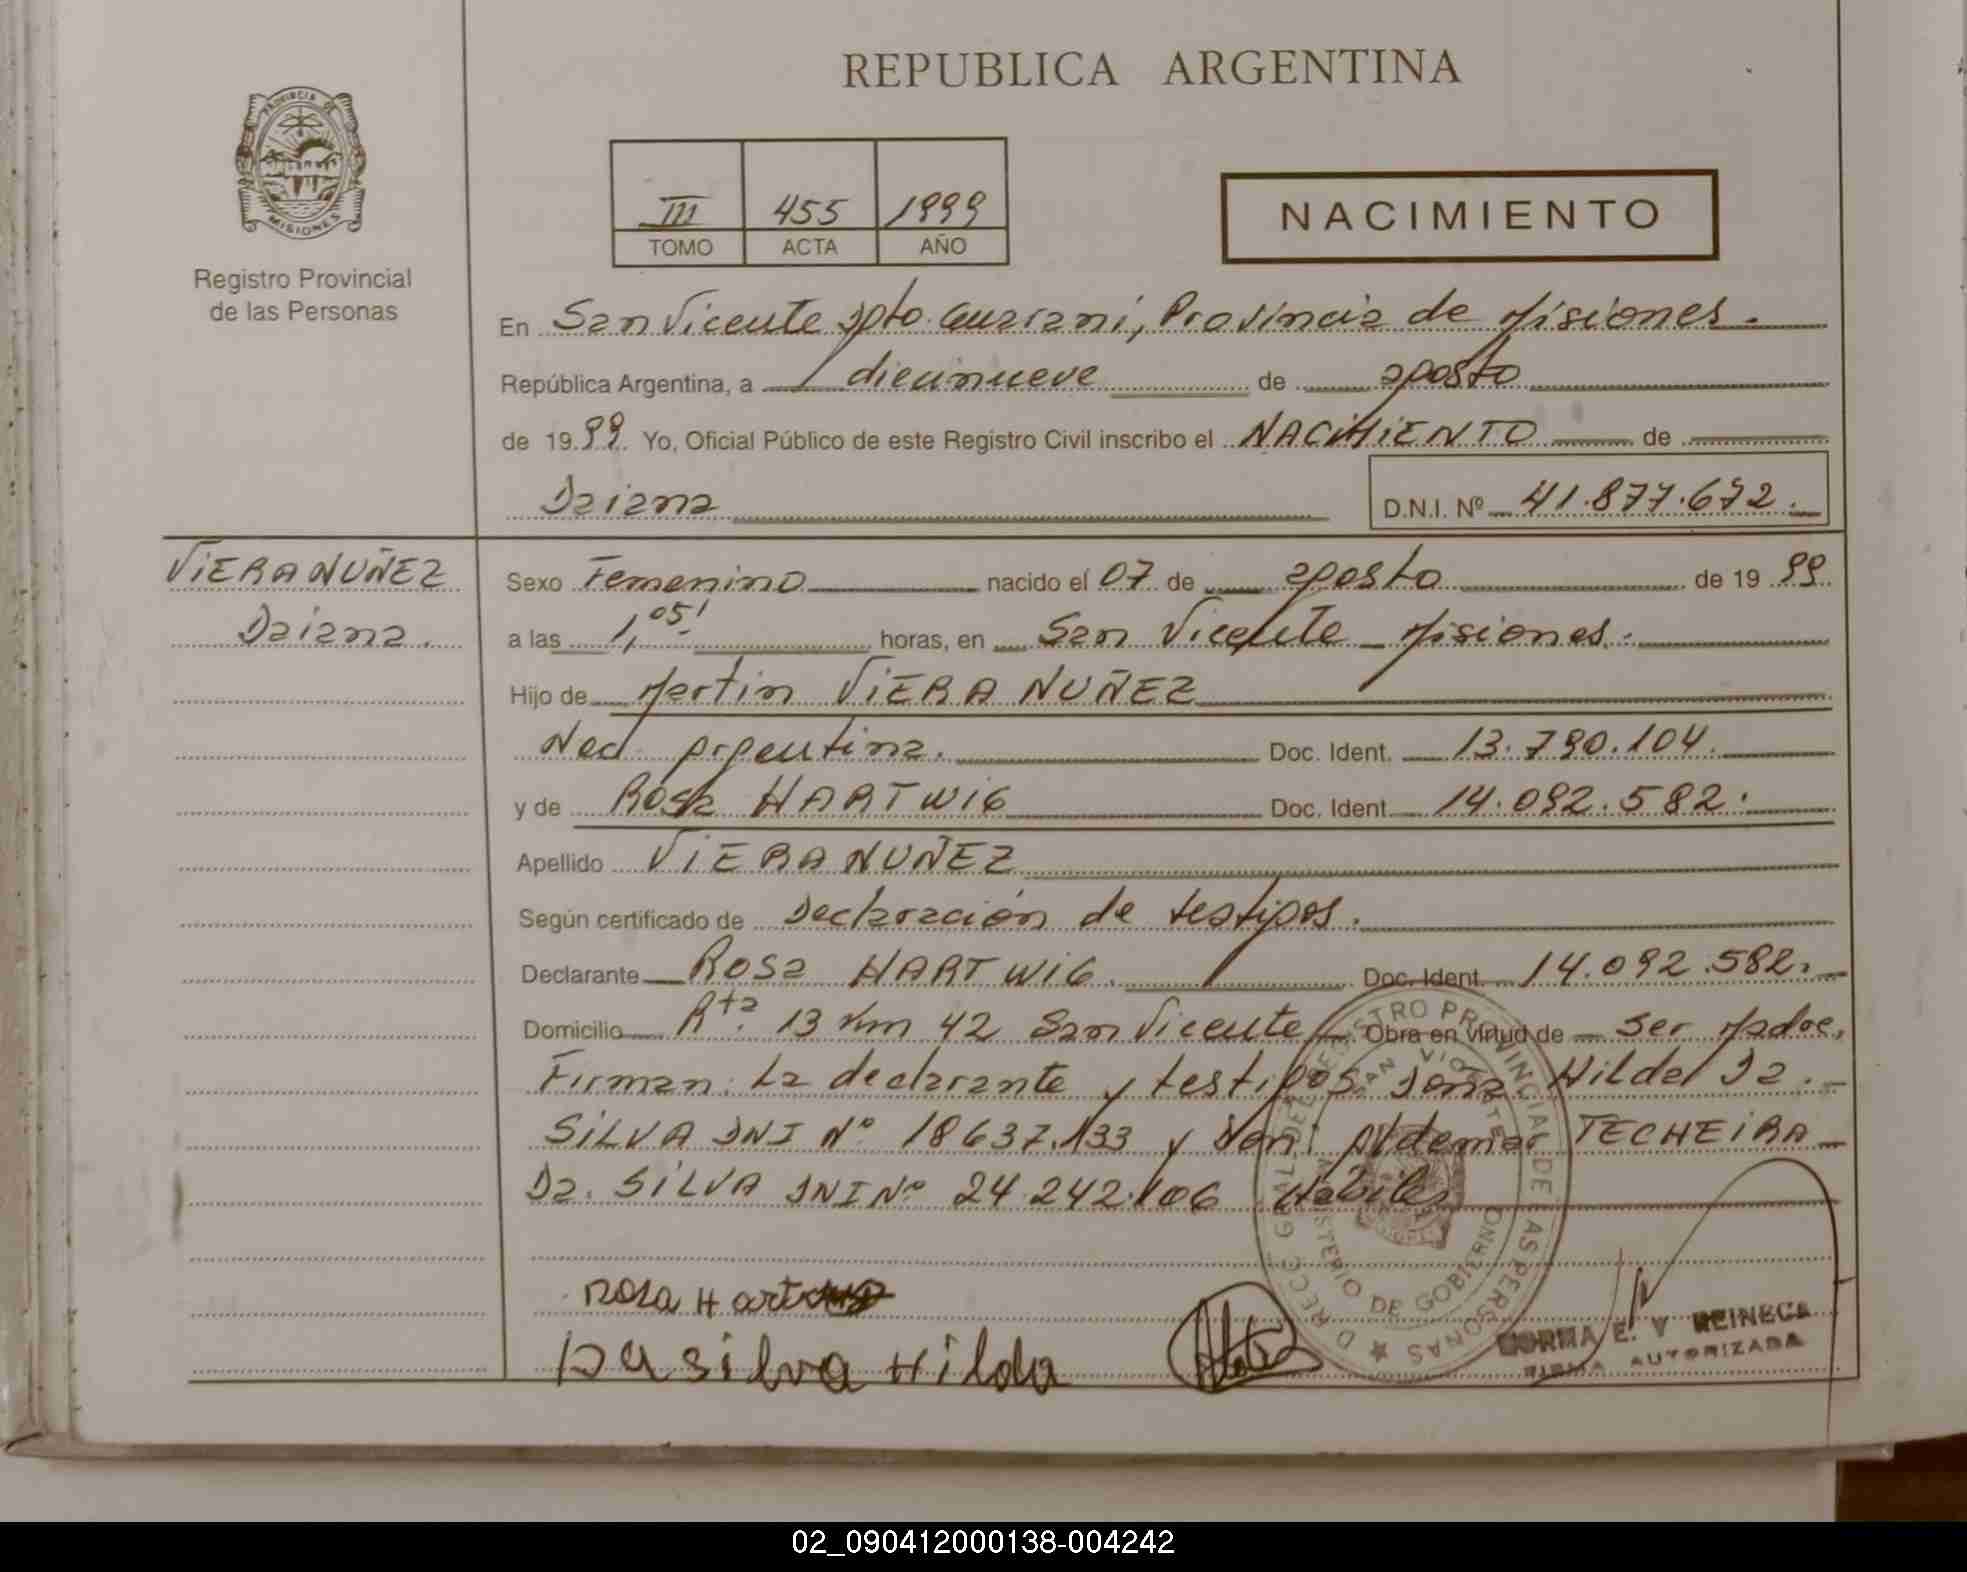 REPUBLICA ARGENTINA
PROVINCIA DE
MISIONES
Registro Provincial
de las Personas
III 455 1999
TOMO ACTA AÑO
NACIMIENTO
En San Vicente Dpto. Guarani, Provincia de Misiones.
República Argentina, a diecinueve de agosto
de 1999. Yo, Oficial Público de este Registro Civil inscribo el NACIMIENTO de
Daiana D.N.I. Nº 41.877.672.
VIERA NUÑEZ
Daiana.
Sexo Femenino nacido el 07 de agosto de 1999.
a las 1,05' horas, en San Vicente - Misiones.
Hijo de Martin VIERA NUÑEZ
Nac. Argentina. Doc. Ident. 13.790.104.
y de Rosa HARTWIG Doc. Ident. 14.092.582.
Apellido VIERA NUÑEZ
Según certificado de Declaración de testigos.
Declarante Rosa HARTWIG. Doc. Ident. 14.092.582.
Domicilio Rta. 13 Km 42 San Vicente Obra en virtud de ser Madre.
Firman: La declarante y testigos Doña Hilda Da.
SILVA DNI Nº 18637.133 y Don: Aldemar TECHEIRA
Da. SILVA DNI Nº 24.242.106 Habiles
DIRECC GRAL DEL REGISTRO PROVINCIAL DE LAS PERSONAS
SAN VICENTE
MINISTERIO DE GOBIERNO
Rosa Hartwig
Da silva Hilda
NORMA E. V REINECK
FIRMA AUTORIZADA
02_090412000138-004242